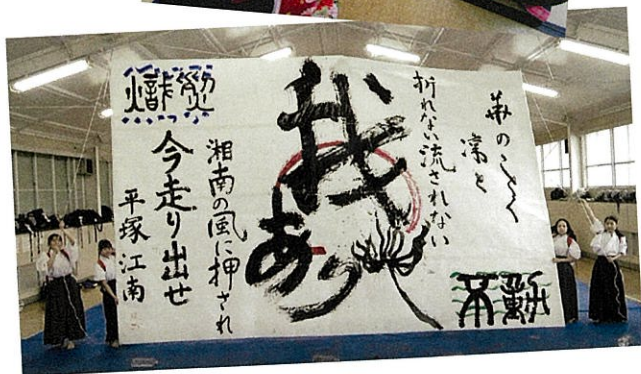 のごとく
凛と
折れない流されない
我
あり
湘南の風に押され
今走り出せ
平塚江南